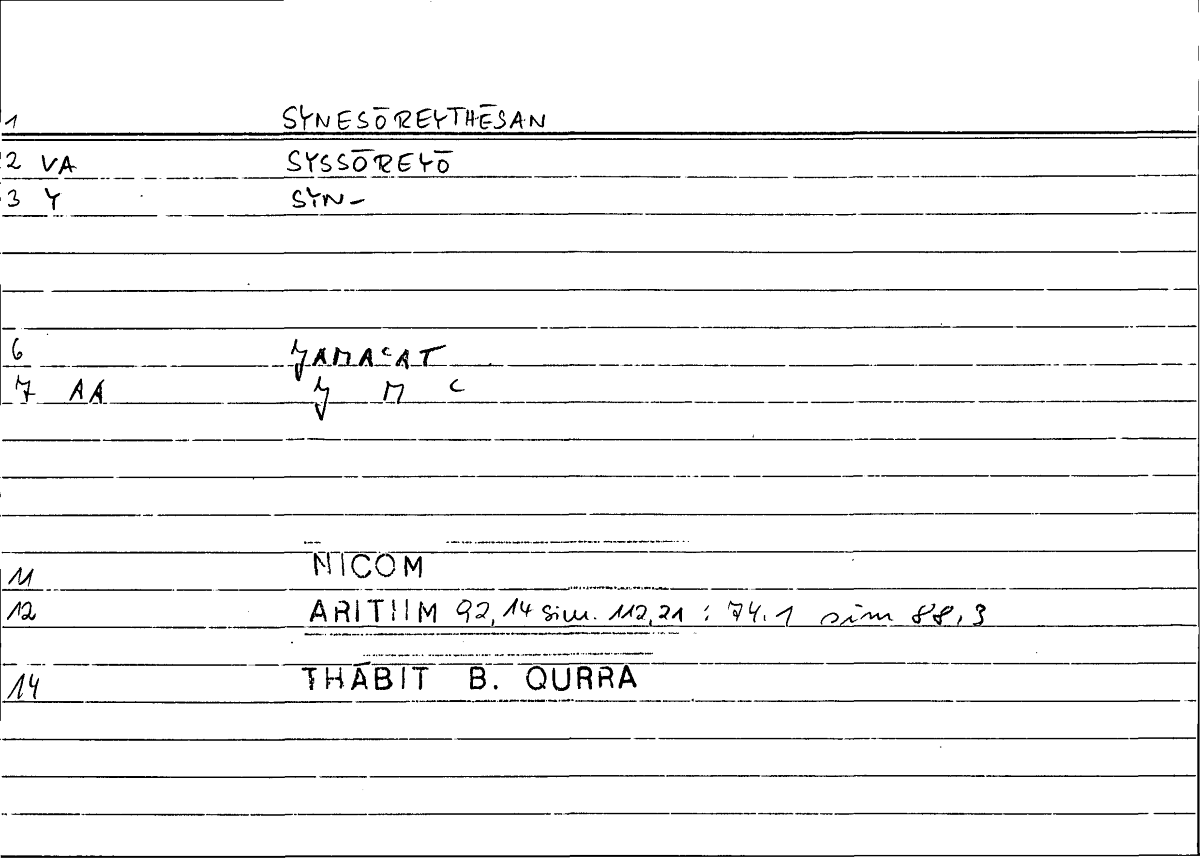 1 SYNESŌREYTHĒSAN
2 VA SYSSŌREYŌ
3 Y SYN-
6 ɈAMAᶜAT
7 AA Ɉ M ᶜ
11 NICOM
12 ARITIIM 92,14 sim. 112,21 : 74.1 sim 88,3
14 THĀBIT B. QURRA